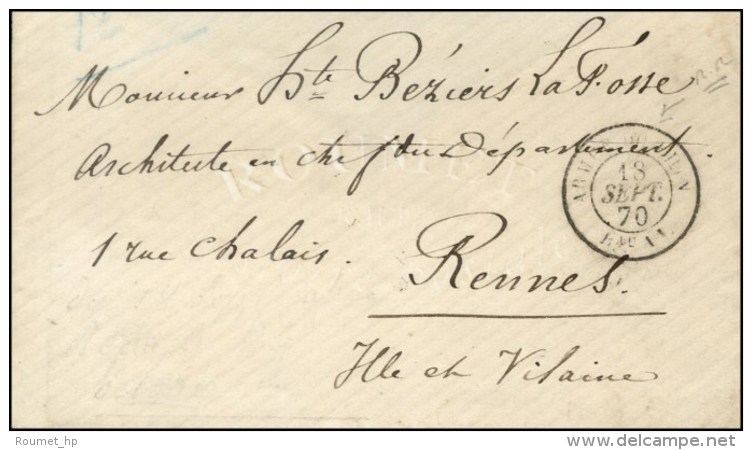 Monsieur Hte Béziers La Fosse
Architecte en chef du Département.
1 rue Chalais.
Rennes.
Ille et Vilaine
18
SEPT.
70
Roumet_hp
delcampe.net